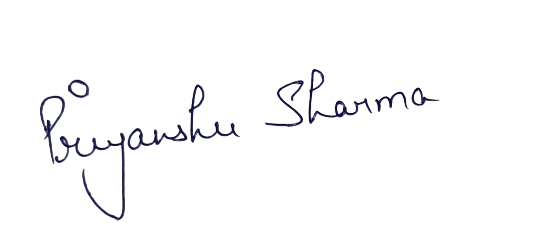 Priyanshu Sharma